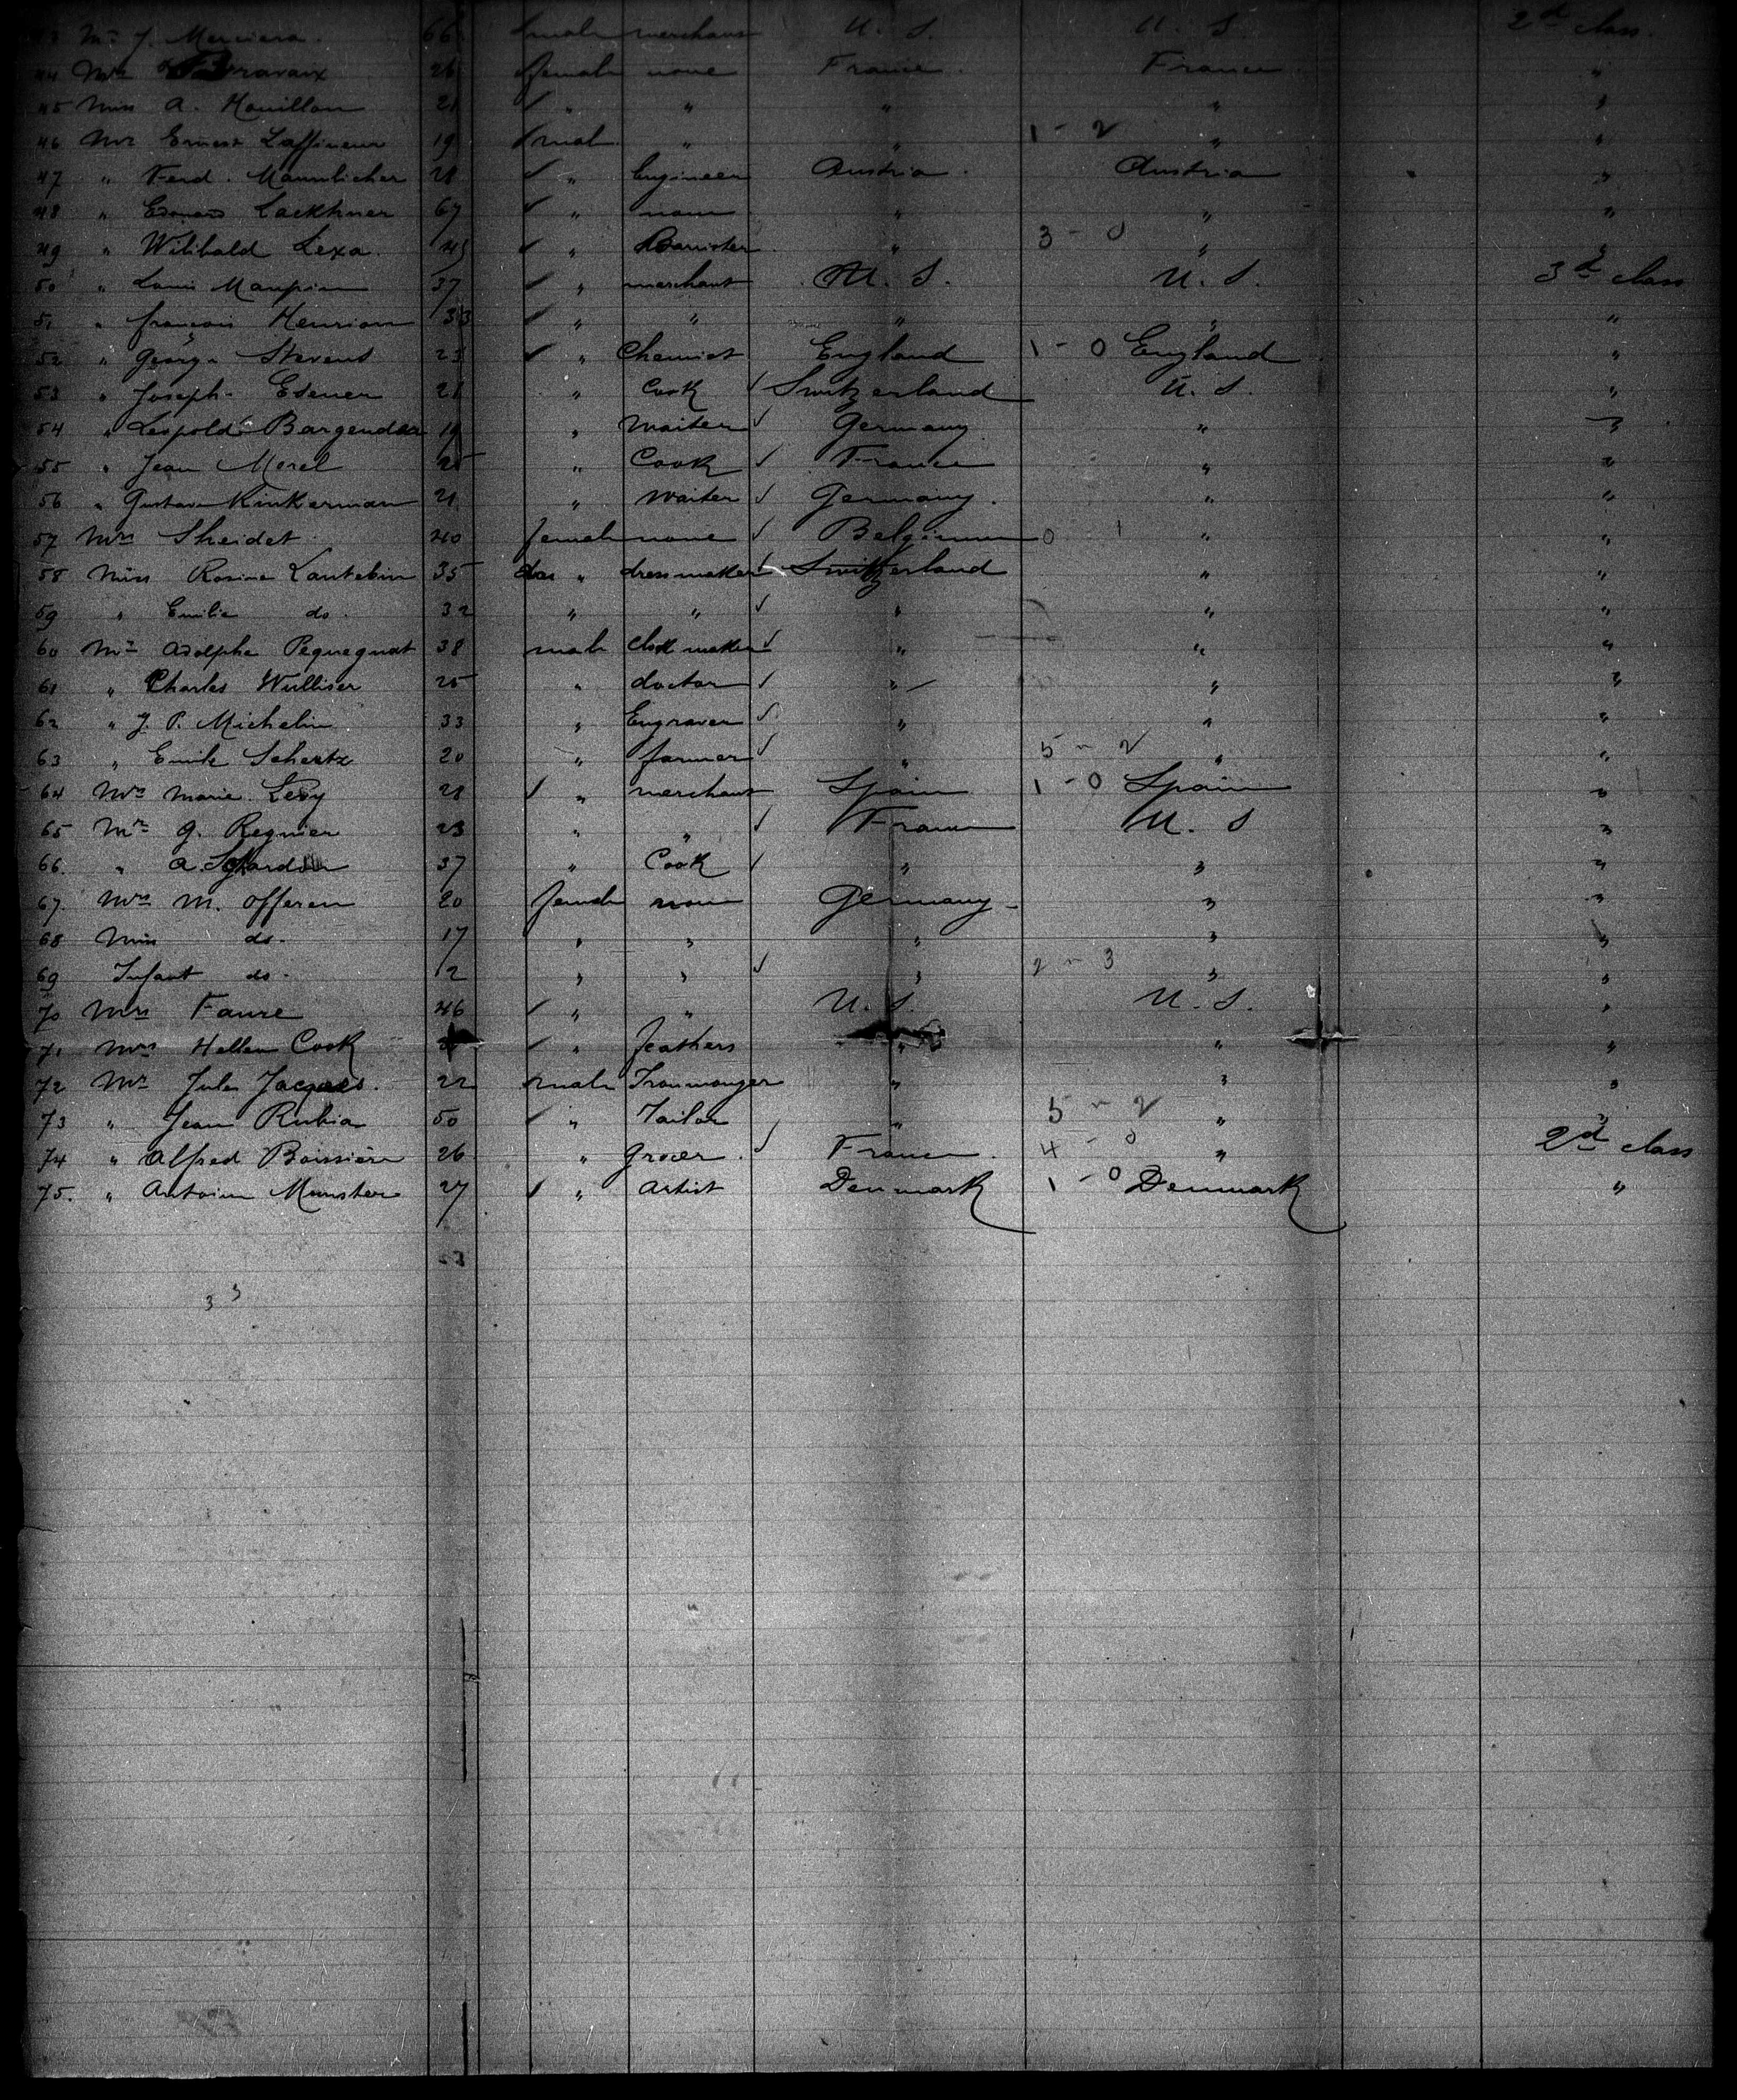 43 Mr J. Merciera. 66 male merchant U. S. U. S. 2d class.
44 Mrs 26 female none France. France "
45 Miss A. Houillon 21 " " " " "
46 Mr Ernest Laffineur 19 male " " 1 - 2 " "
47 " Ferd. Mannlicher 28 " Engineer Austria. Austria "
48 " Lackhner 67 " none " " "
49 " Wilibald Lexa. 45 " Barrister " 3 - 0 " "
50 " Louis Maupin 37 " merchant U. S. U. S. 3d class
51 " françois Henrion 33 " " " " "
52 " George Stevens 23 " Chemist England 1 - 0 England "
53 " Joseph Edener 21 " Cook Switzerland U. S. "
54 " Leopold 19 " Waiter Germany " "
55 " Jean Morel 25 " Cook France " "
56 " Gustave Kinkerman 21 " Waiter Germany. " "
57 Mrs Sheidet 40 female none Belgium 0 1 " "
58 Miss Rosine 35 " dressmaker Switzerland " "
59 " Emilie do. 32 " " " " "
60 Mr Adolphe Pequegnat 38 male clock maker " " "
61 " Charles Wulliser 25 " doctor " " "
62 " J. P. Michelin 33 " Engraver " " "
63 " Emile Schertz 20 " farmer " 5 - 2 " "
64 Mrs Marie Levy 28 " merchant Spain 1 - 0 Spain "
65 Mr G. Regnier 23 " " France U. S "
66. " A. 37 " Cook " " "
67. Mrs M. Offeren 20 female none Germany " "
68 Miss do. 17 " " " " "
69 Infant do. 2 " " " 2 - 3 " "
70 Mrs Faure 46 " " U. S. U. S. "
71 Mrs Hellen Cook " feathers " " "
72 Mr Jules Jacques. 22 male Ironmonger " " "
73 " Jean Rubia 50 " Tailor " 5 - 2 " "
74 " Alfred Boissière 26 " grocer. France. 4 - 0 " 2d class
75. " Antoine Munster 27 " Artist Denmark 1 - 0 Denmark "
33